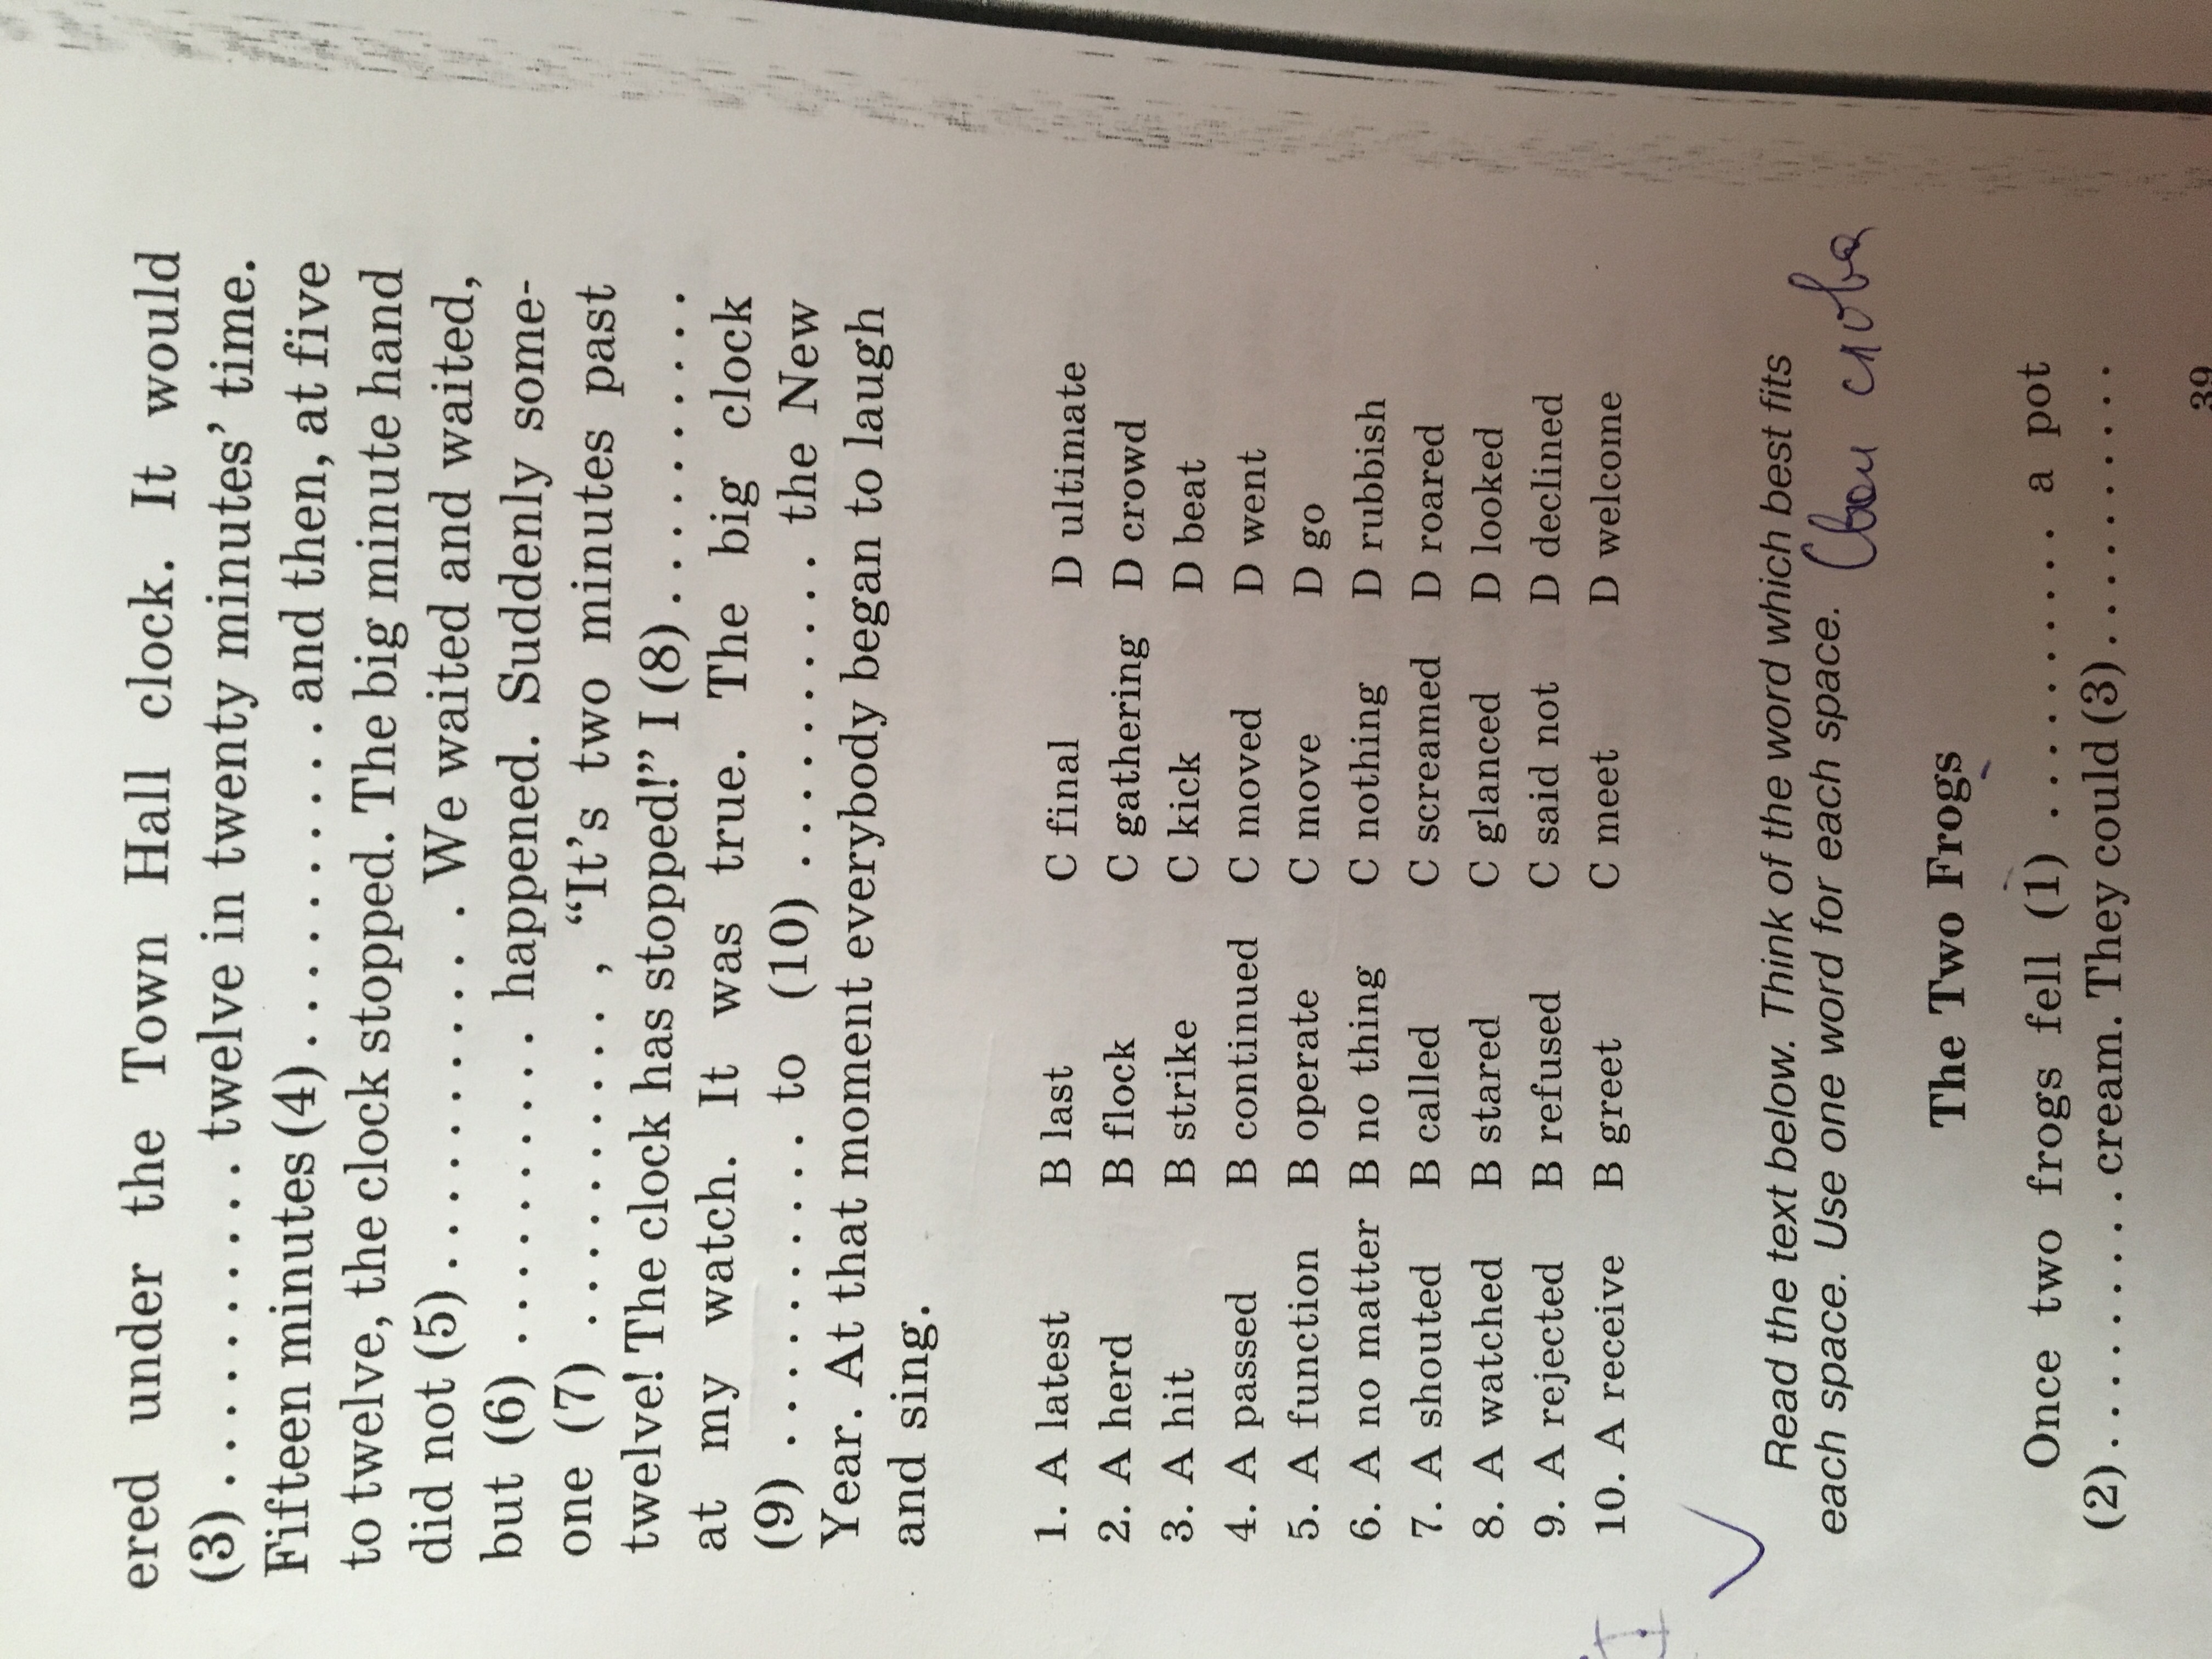 ered under the Town Hall clock. It would
(3) . . . . . . . . . . twelve in twenty minutes' time.
Fifteen minutes (4) . . . . . . . . . . and then, at five
to twelve, the clock stopped. The big minute hand
did not (5) . . . . . . . . . . We waited and waited,
but (6) . . . . . . . . . . happened. Suddenly some-
one (7) . . . . . . . . . . , “It's two minutes past
twelve! The clock has stopped!” I (8) . . . . . . . . . .
at my watch. It was true. The big clock
(9) . . . . . . . . . . to (10) . . . . . . . . . . the New
Year. At that moment everybody began to laugh
and sing.
1. A latest B last C final D ultimate
2. A herd B flock C gathering D crowd
3. A hit B strike C kick D beat
4. A passed B continued C moved D went
5. A function B operate C move D go
6. A no matter B no thing C nothing D rubbish
7. A shouted B called C screamed D roared
8. A watched B stared C glanced D looked
9. A rejected B refused C said not D declined
10. A receive B greet C meet D welcome
Read the text below. Think of the word which best fits
each space. Use one word for each space. Свои слова
The Two Frogs
Once two frogs fell (1) . . . . . . . . . . a pot
(2) . . . . . . . . . . cream. They could (3) . . . . . . . . . .
39